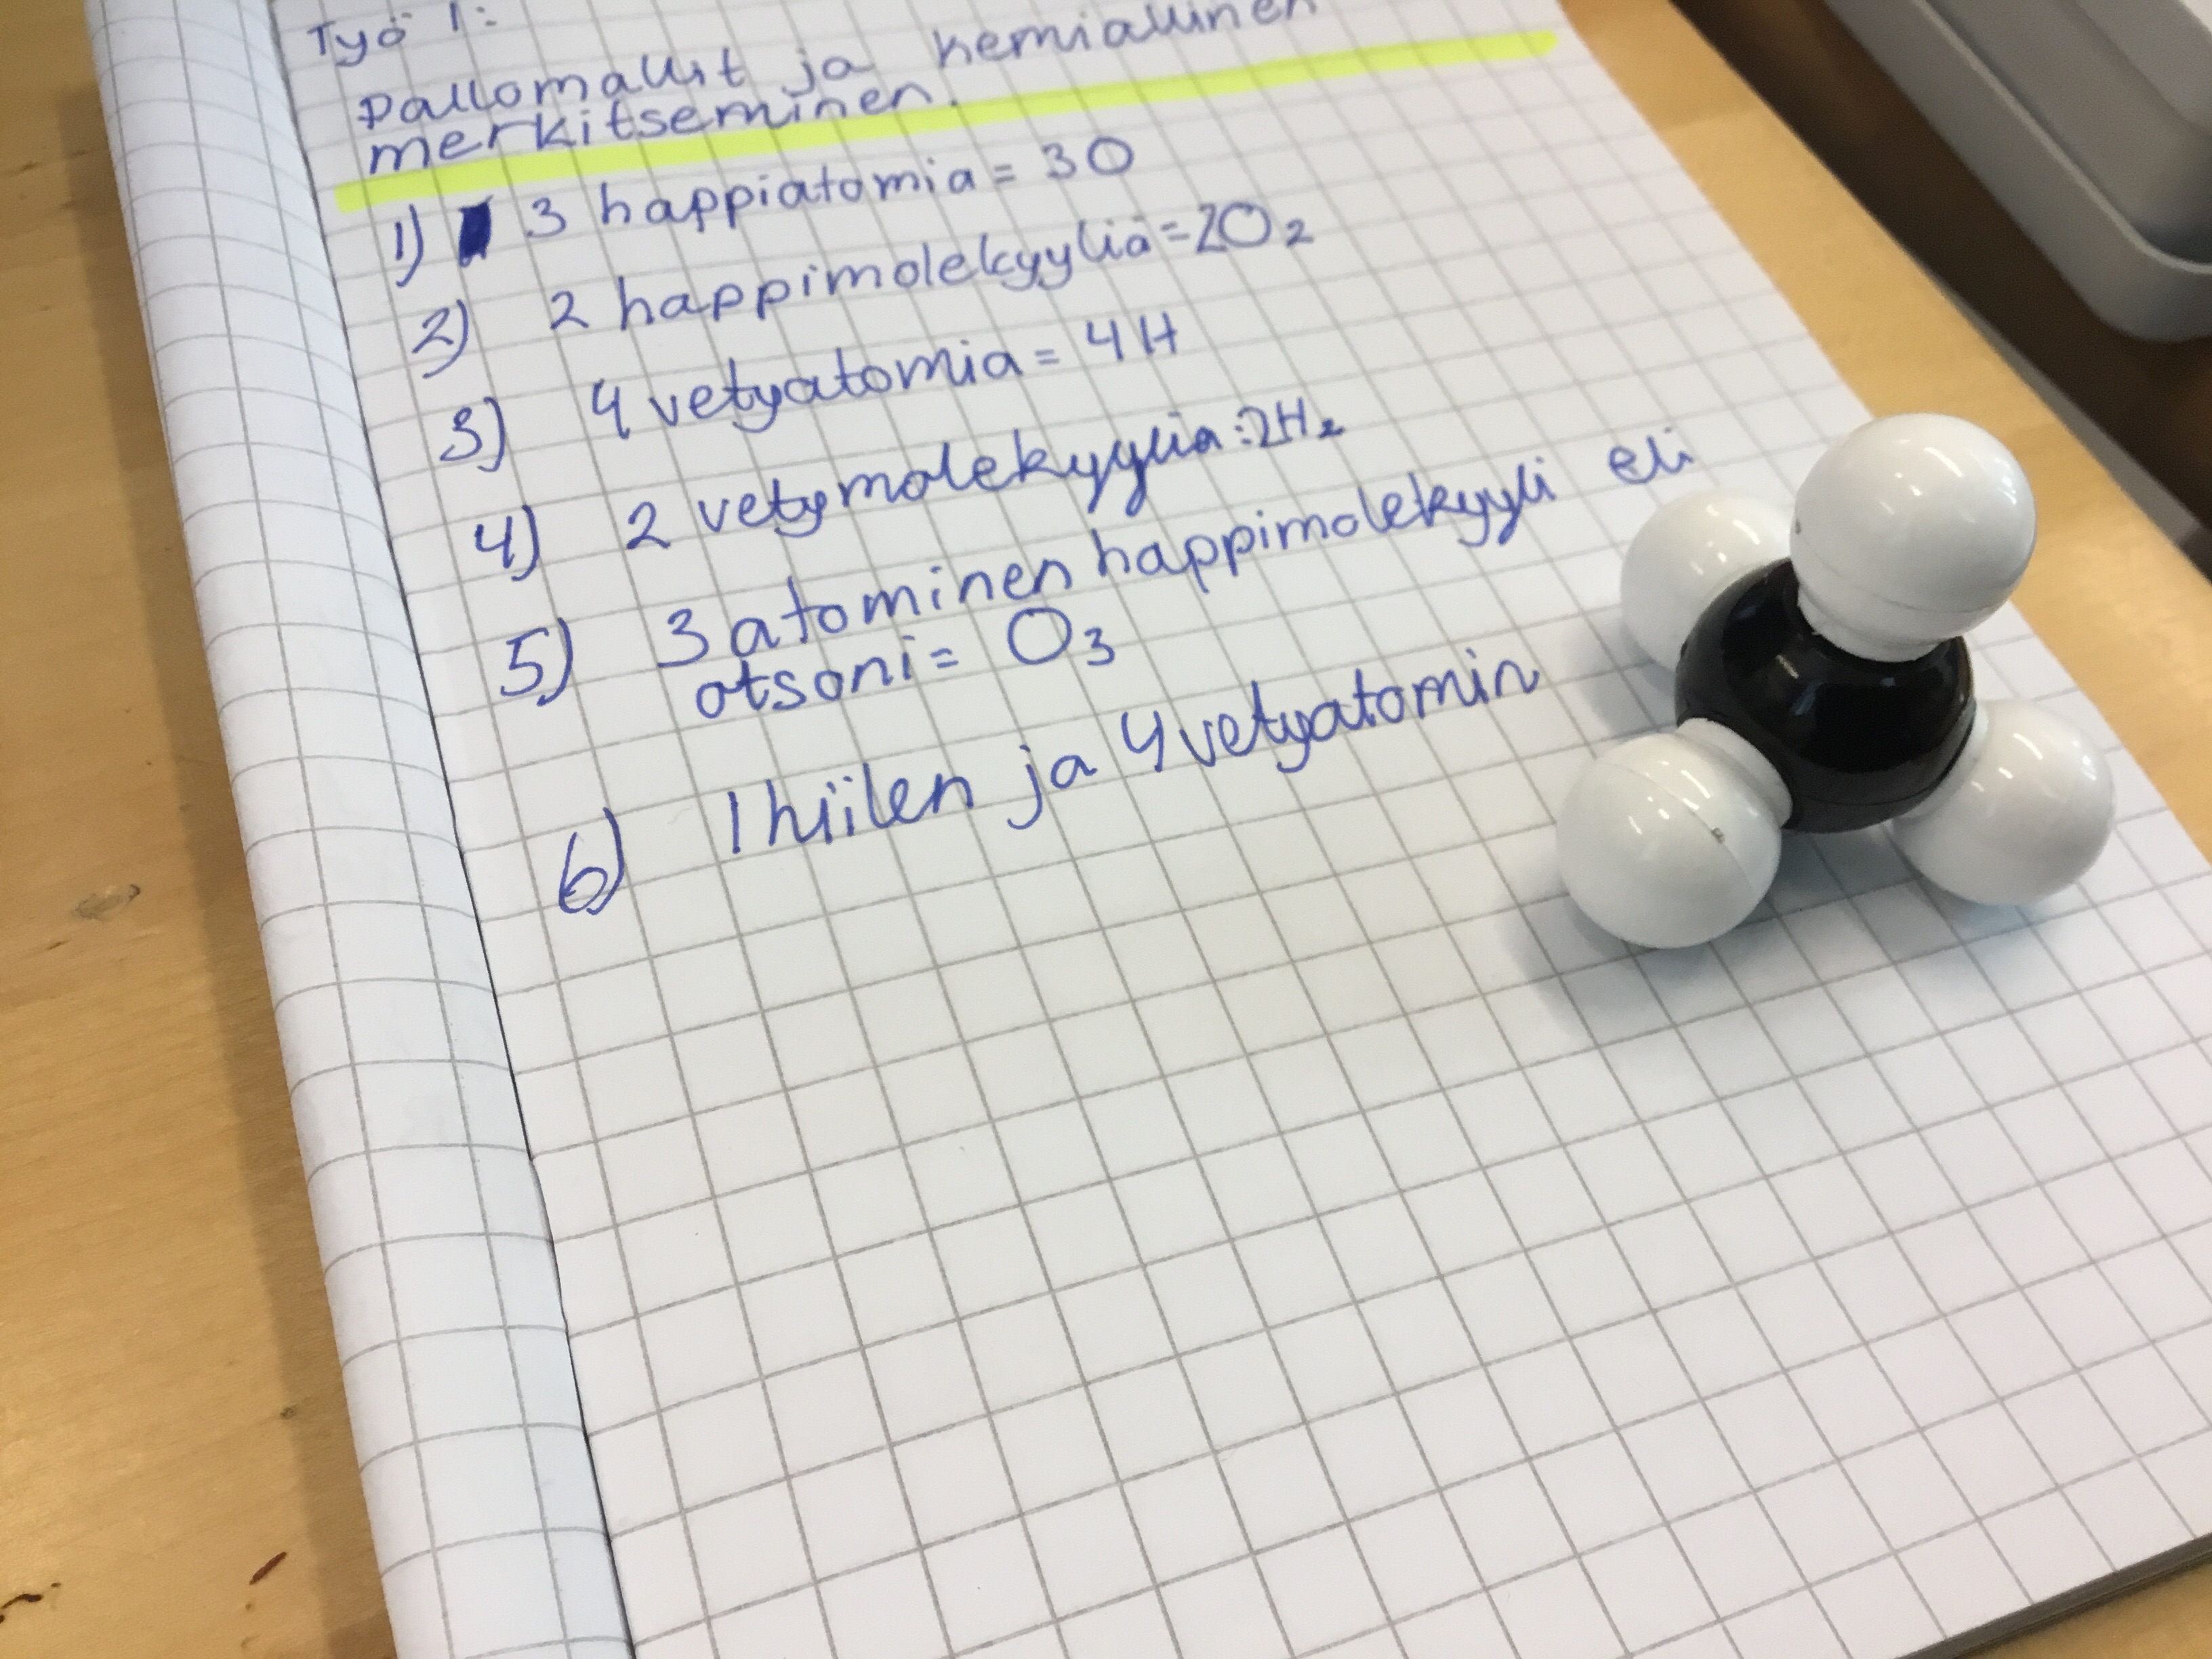 Työ 1:
Pallomallit ja kemiallinen
merkitseminen.
1) 3 happiatomia = 3O
2) 2 happimolekyyliä = 2O₂
3) 4 vetyatomia = 4H
4) 2 vetymolekyyliä = 2H₂
5) 3 atominen happimolekyyli eli
otsoni = O₃
6) 1 hiilen ja 4 vetyatomin